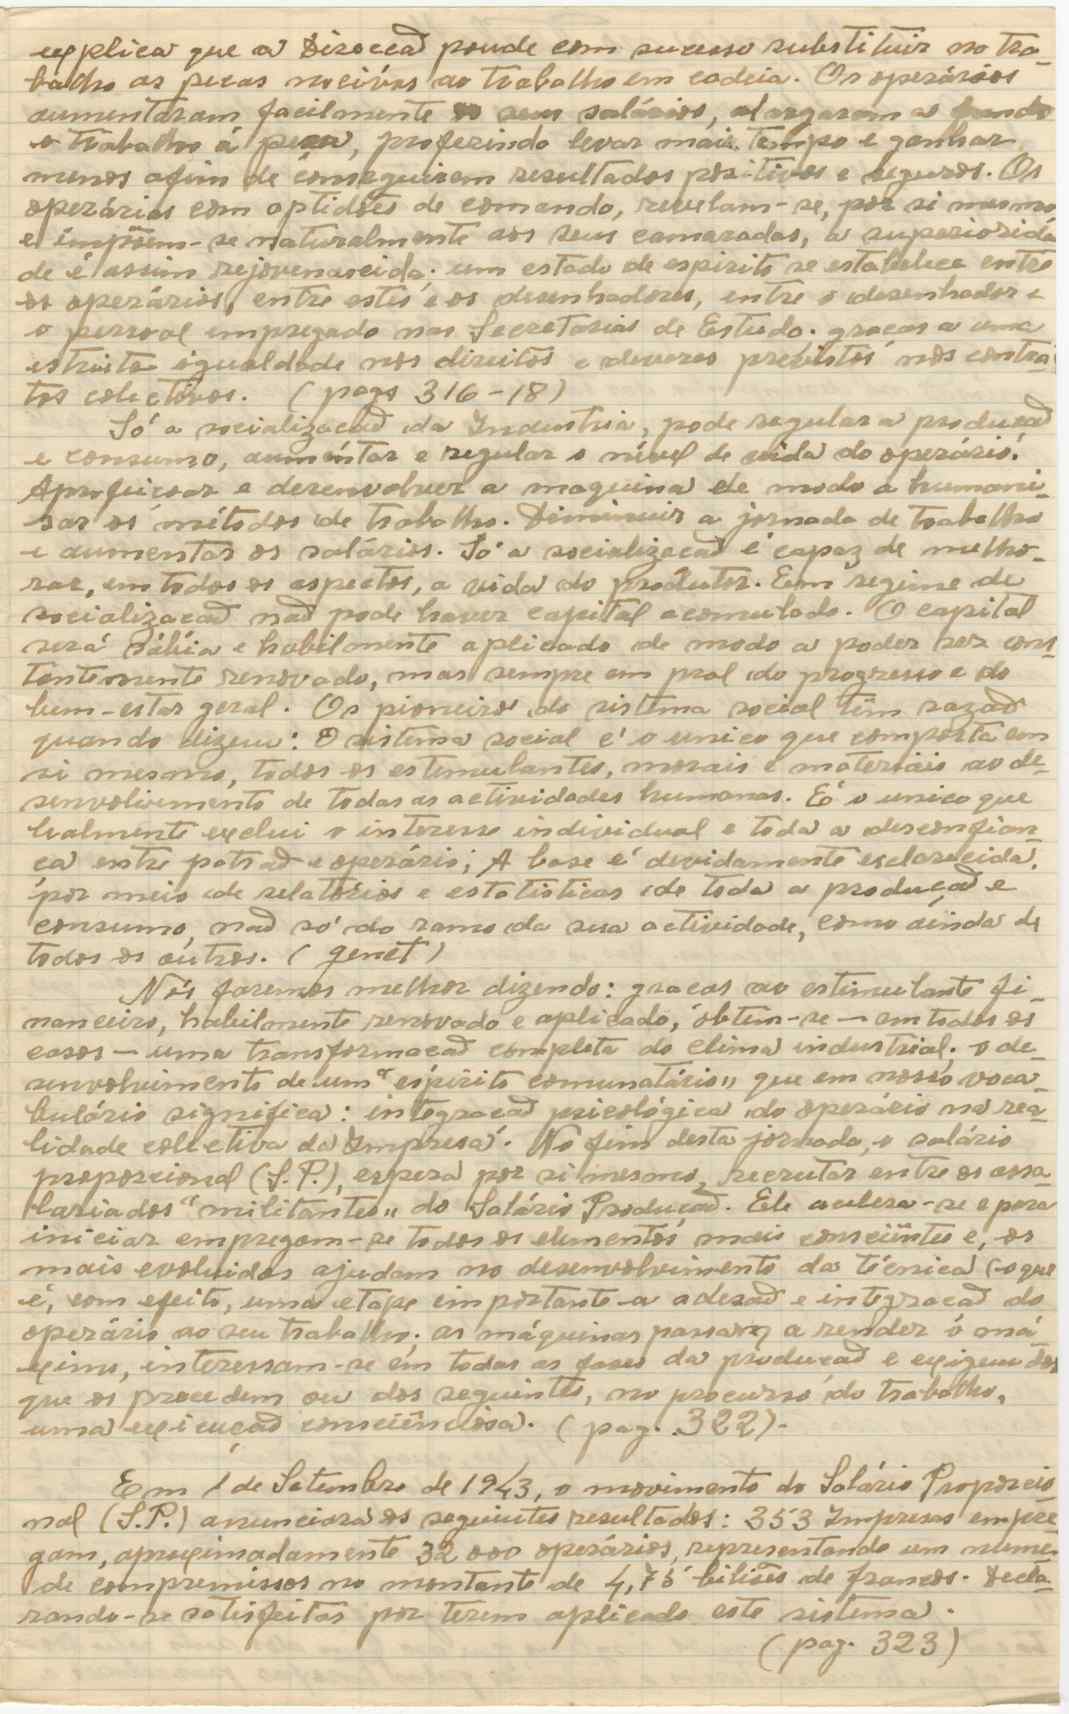 explica que a Direccaõ poude com sucesso substituir no tra-
balho as peças nocivas ao trabalho em cadeia. Os operários
aumentaram facilmente os seus salários, alargaram a
o trabalho á peça, proferindo levar mais tempo e ganhar
menos afim de conseguirem resultados positivos e seguros. Os
operários com aptidoẽs de comando, revelam-se, por si mesmo
e impõem-se naturalmente aos seus camaradas, a superiorida-
de é assim rejovenascida; um estado de espirito se estabelece entre
os operários, entre estes e os desenhadores, entre o desenhador e
o pessoal empregado nas Secretarias de Estudo. graças a uma
estreita igualdade nos direitos e deveres previstos nos contra-
tos colectivos. (pags 316-18)
Só a socializacaõ da Industria, pode regular a producaõ
e consumo, aumentar e regular o nível de vida do operário.
Aprofeiçoar e desenvolver a maquina de modo a humani-
sar os métodos de trabalho. Diminuir a jornada de trabalho
e aumentar os salários. Só a socializacaõ é capaz de melho-
rar, em todos os aspectos, a vida do produtor. Em regime de
socializacaõ naõ pode haver capital acomulado. O capital
será sábia e habilmente aplicado de modo a poder ser cons-
tentemente renovado, mas sempre em prol do progresso e do
bem-estar geral. Os pioneiros do sistema social têm razaõ
quando dizem: O sistema social é o unico que comporta em
si mesmo, todos os estemulantes, morais e materiais ao de-
senvolvimento de todas as actividades humanas. É o unico que
halmente exclui o interesse individual e toda a desconfian-
ça entre patraõ e operário; A base é devidamente esclarecida,
por meio de relatórios e estatísticas de toda a produçaõ e
consumo, naõ só do ramo da sua actividade, como ainda de
todos os outros. (genet)
Nós faremos melhor dizendo: graças ao estimulante fi-
nanceiro, habilmente renovado e aplicado, obtem-se — em todos os
casos — uma transformacaõ completa do clima industrial; o de-
senvolvimento de um “espirito comunatário” que em nosso voca-
bulário significa: integracaõ psicológica do operário na rea-
lidade colectiva da Impresa. No fim desta jornada, o salário
proporcional (S.P.), espera por si mesmo, recrutar entre os assa-
lariados “militantes” do Salário Producaõ. Ele acelera-se e para
iniciar empregam-se todos os elementos mais conscientes e, os
mais evoluidos ajudam no desenvolvimento da técnica (o que
é, com efeito, uma etape importante - a adesaõ e integracaõ do
operário ao seu trabalho. as máquinas passam a render o má-
ximo, interessam-se em todas as fases da producaõ e exigem dos
que os precedem ou dos seguintes, no procurso do trabalho,
uma execucaõ consciênciosa. (pag. 322).
Em 1 de Setembro de 1943, o movimento do Salário Proporcio-
nal (S.P.) anunciara os seguintes resultados: 353 Impresas empre-
gam, aproximadamente 32 000 operários, representando um nume-
de compremissos no montante de 4,75 biliões de francos. Decla-
rando-se satisfeitas por terem aplicado este sistema.
(pag. 323)